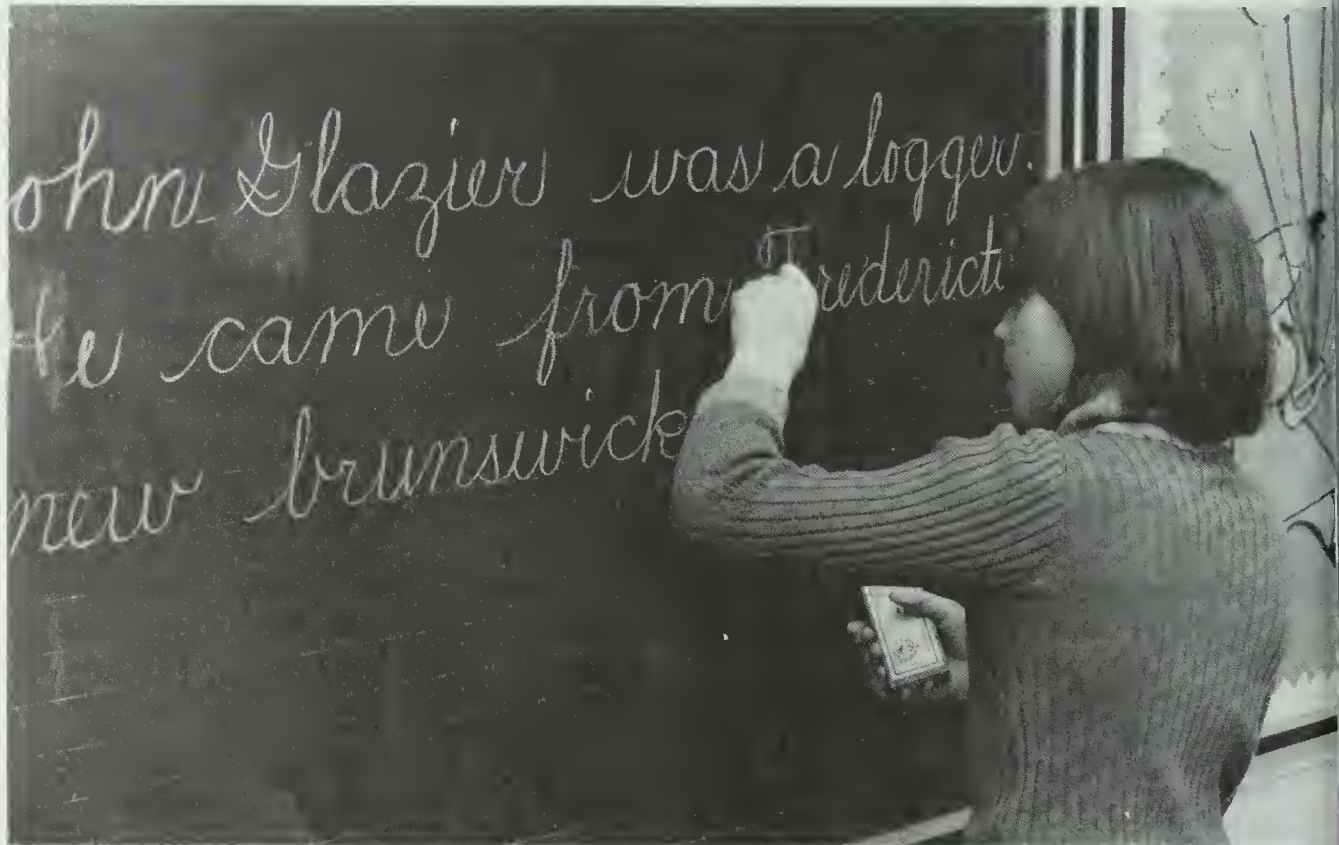 ohn Glazier was a logger.
He came from Frederict
new brunswick